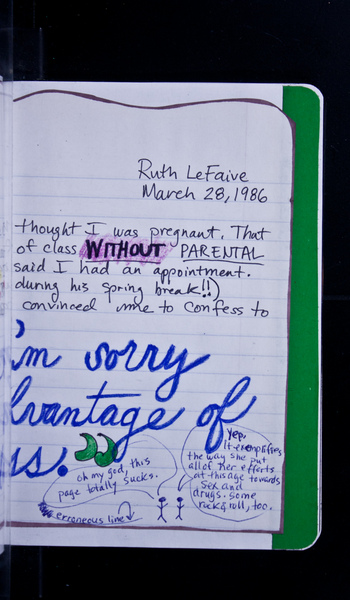 Ruth LeFaive
March 28, 1986
thought I was pregnant. That
of class WITHOUT PARENTAL
said I had an appointment.
during his spring break!!)
convinced me to confess to
I'm sorry
dvantage of
us.
oh my god, this
page totally sucks.
erroneous line
Yep.
It exemplifies
the way she put
all of her efforts
at this age towards
sex and
drugs. some
rock & roll, too.